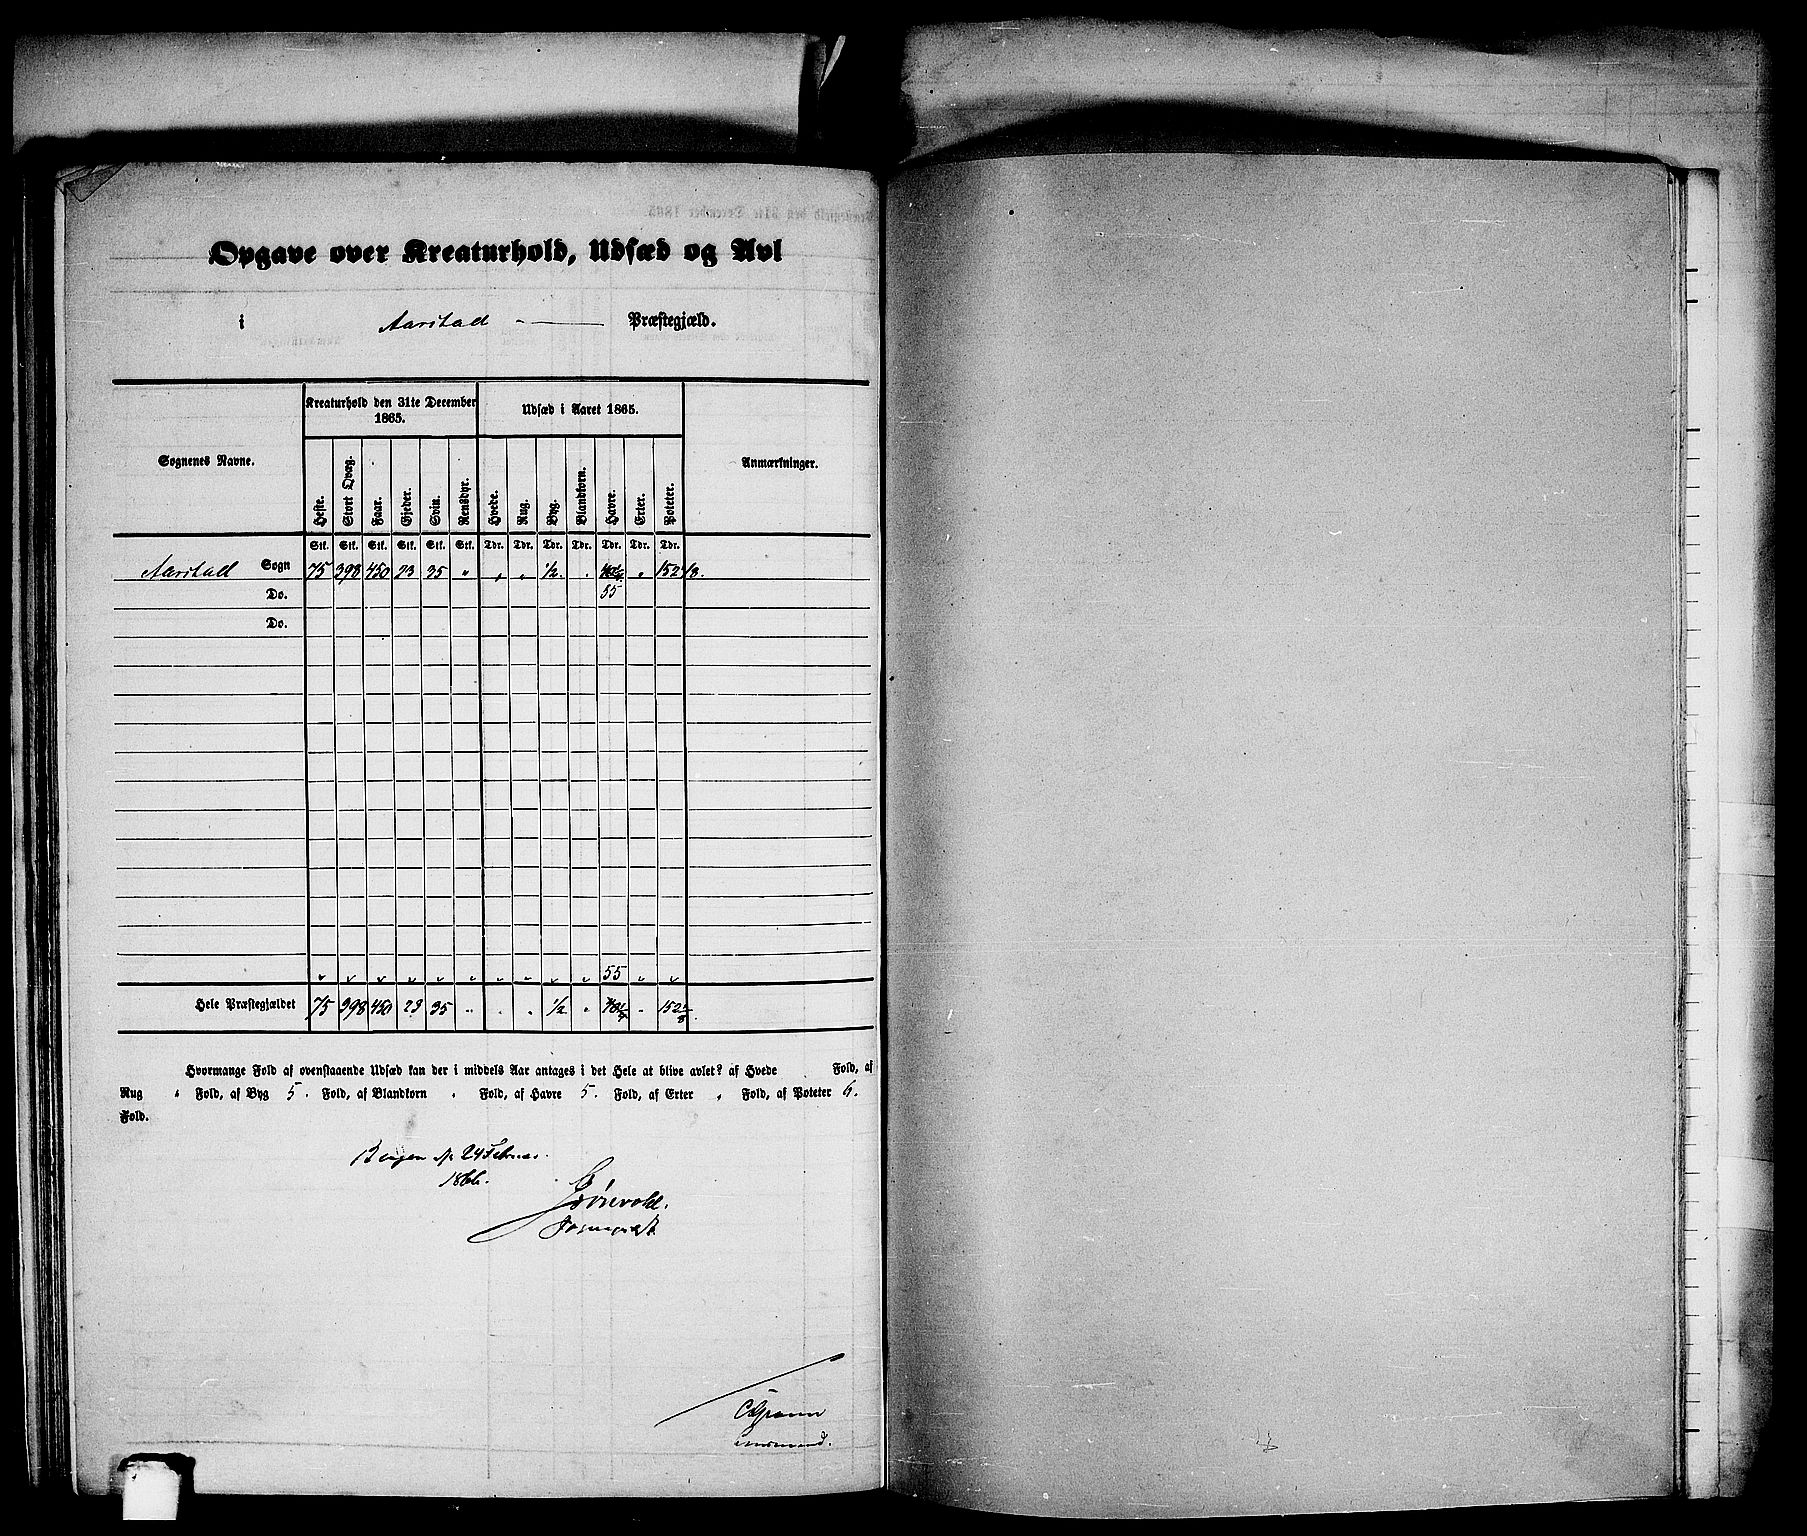 Opgave over Kreaturhold, Udsæd og Avl
i Aarstad Præstegjæld.
Sognenes Navne.
Kreaturhold den 31te December 1865.
Udsæd i Aaret 1865.
Anmærkninger.
Heste. Stort Qvæg. Faar. Gjeder. Svin. Rensdyr. Hvede. Rug. Byg. Blandkorn. Havre. Erter. Poteter.
Stk. Stk. Stk. Stk. Stk. Stk. Tdr. Tdr. Tdr. Tdr. Tdr. Tdr. Tdr.
Aarstad Sogn 75 398 450 23 35 " " " 1/2. " " 152 1/8.
Do. 55
Do.
55
Hele Præstegjældet 75 398 450 23 35 " " " 1/2 " " 152 1/8.
Hvormange Fold af ovenstaaende Udsæd kan der i middels Aar antages i det Hele at blive avlet? af Hvede Fold, af
Rug " Fold, af Byg 5. Fold, af Blandkorn " Fold, af Havre 5. Fold, af Erter " Fold, af Poteter 6.
Fold.
Bergen 24 Februar
1866.
Grönvold.
Sognepræst
Lensmand.